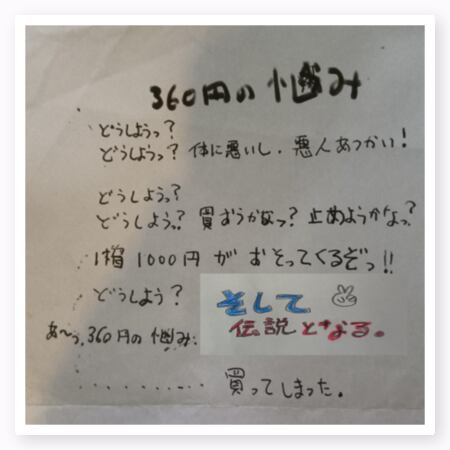 360円の悩み
どうしようっ?
どうしようっ? 体に悪いし、悪人あつかい!
どうしようっ?
どうしようっ? 買おうかなっ? 止めようかなっ?
1箱 1000円 が おそってくるぞっ!!
どうしよう?
そして
伝説となる。
あ〜っ、360円の悩み
・・・・・・・・・・ 買ってしまった。